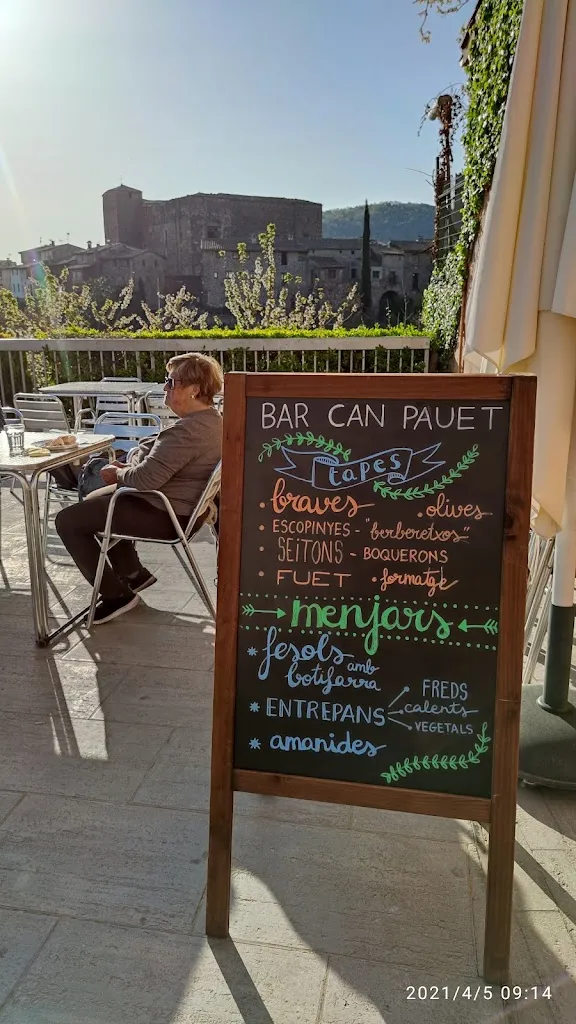 BAR CAN PAUET
tapes
• braves • olives
• ESCOPINYES - "berberetxos"
• SEITONS - BOQUERONS
• FUET • formatge
menjars
* fesols amb botifarra
* ENTREPANS FREDS
calents
VEGETALS
* amanides
2021/4/5 09:14